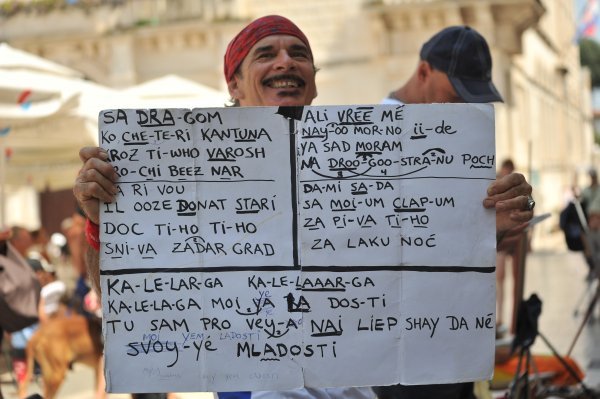 SA DRA-GOM
KO CHE-TE-RI KANTUNA
KROZ TI-WHO VAROSH
PRO-CHI BEEZ NAR
ZA RI VOU
IL OOZE DONAT STARÍ
DOC TI-HO TI-HO
SNI-VA ZADAR GRAD
ALI VREE MÉ
NAY-OO MOR-NO ii-de
YA SAD MORAM
NA DROO-GOO-STRA-NU POCH
4
DA-MI SA-DA
SA MOI-UM CLAP-UM
ZA PI-VA TI-HO
ZA LAKU NOĆ
KA-LE-LAR-GA KA-LE-LAAAR-GA
KA-LE-LA-GA MOI YA LA DOS-TI
TU SAM PRO VEY-A NAI LIEP SHAY DA NÉ
MOI YEM LADOSTI
SVOY-YÉ MLADOSTI